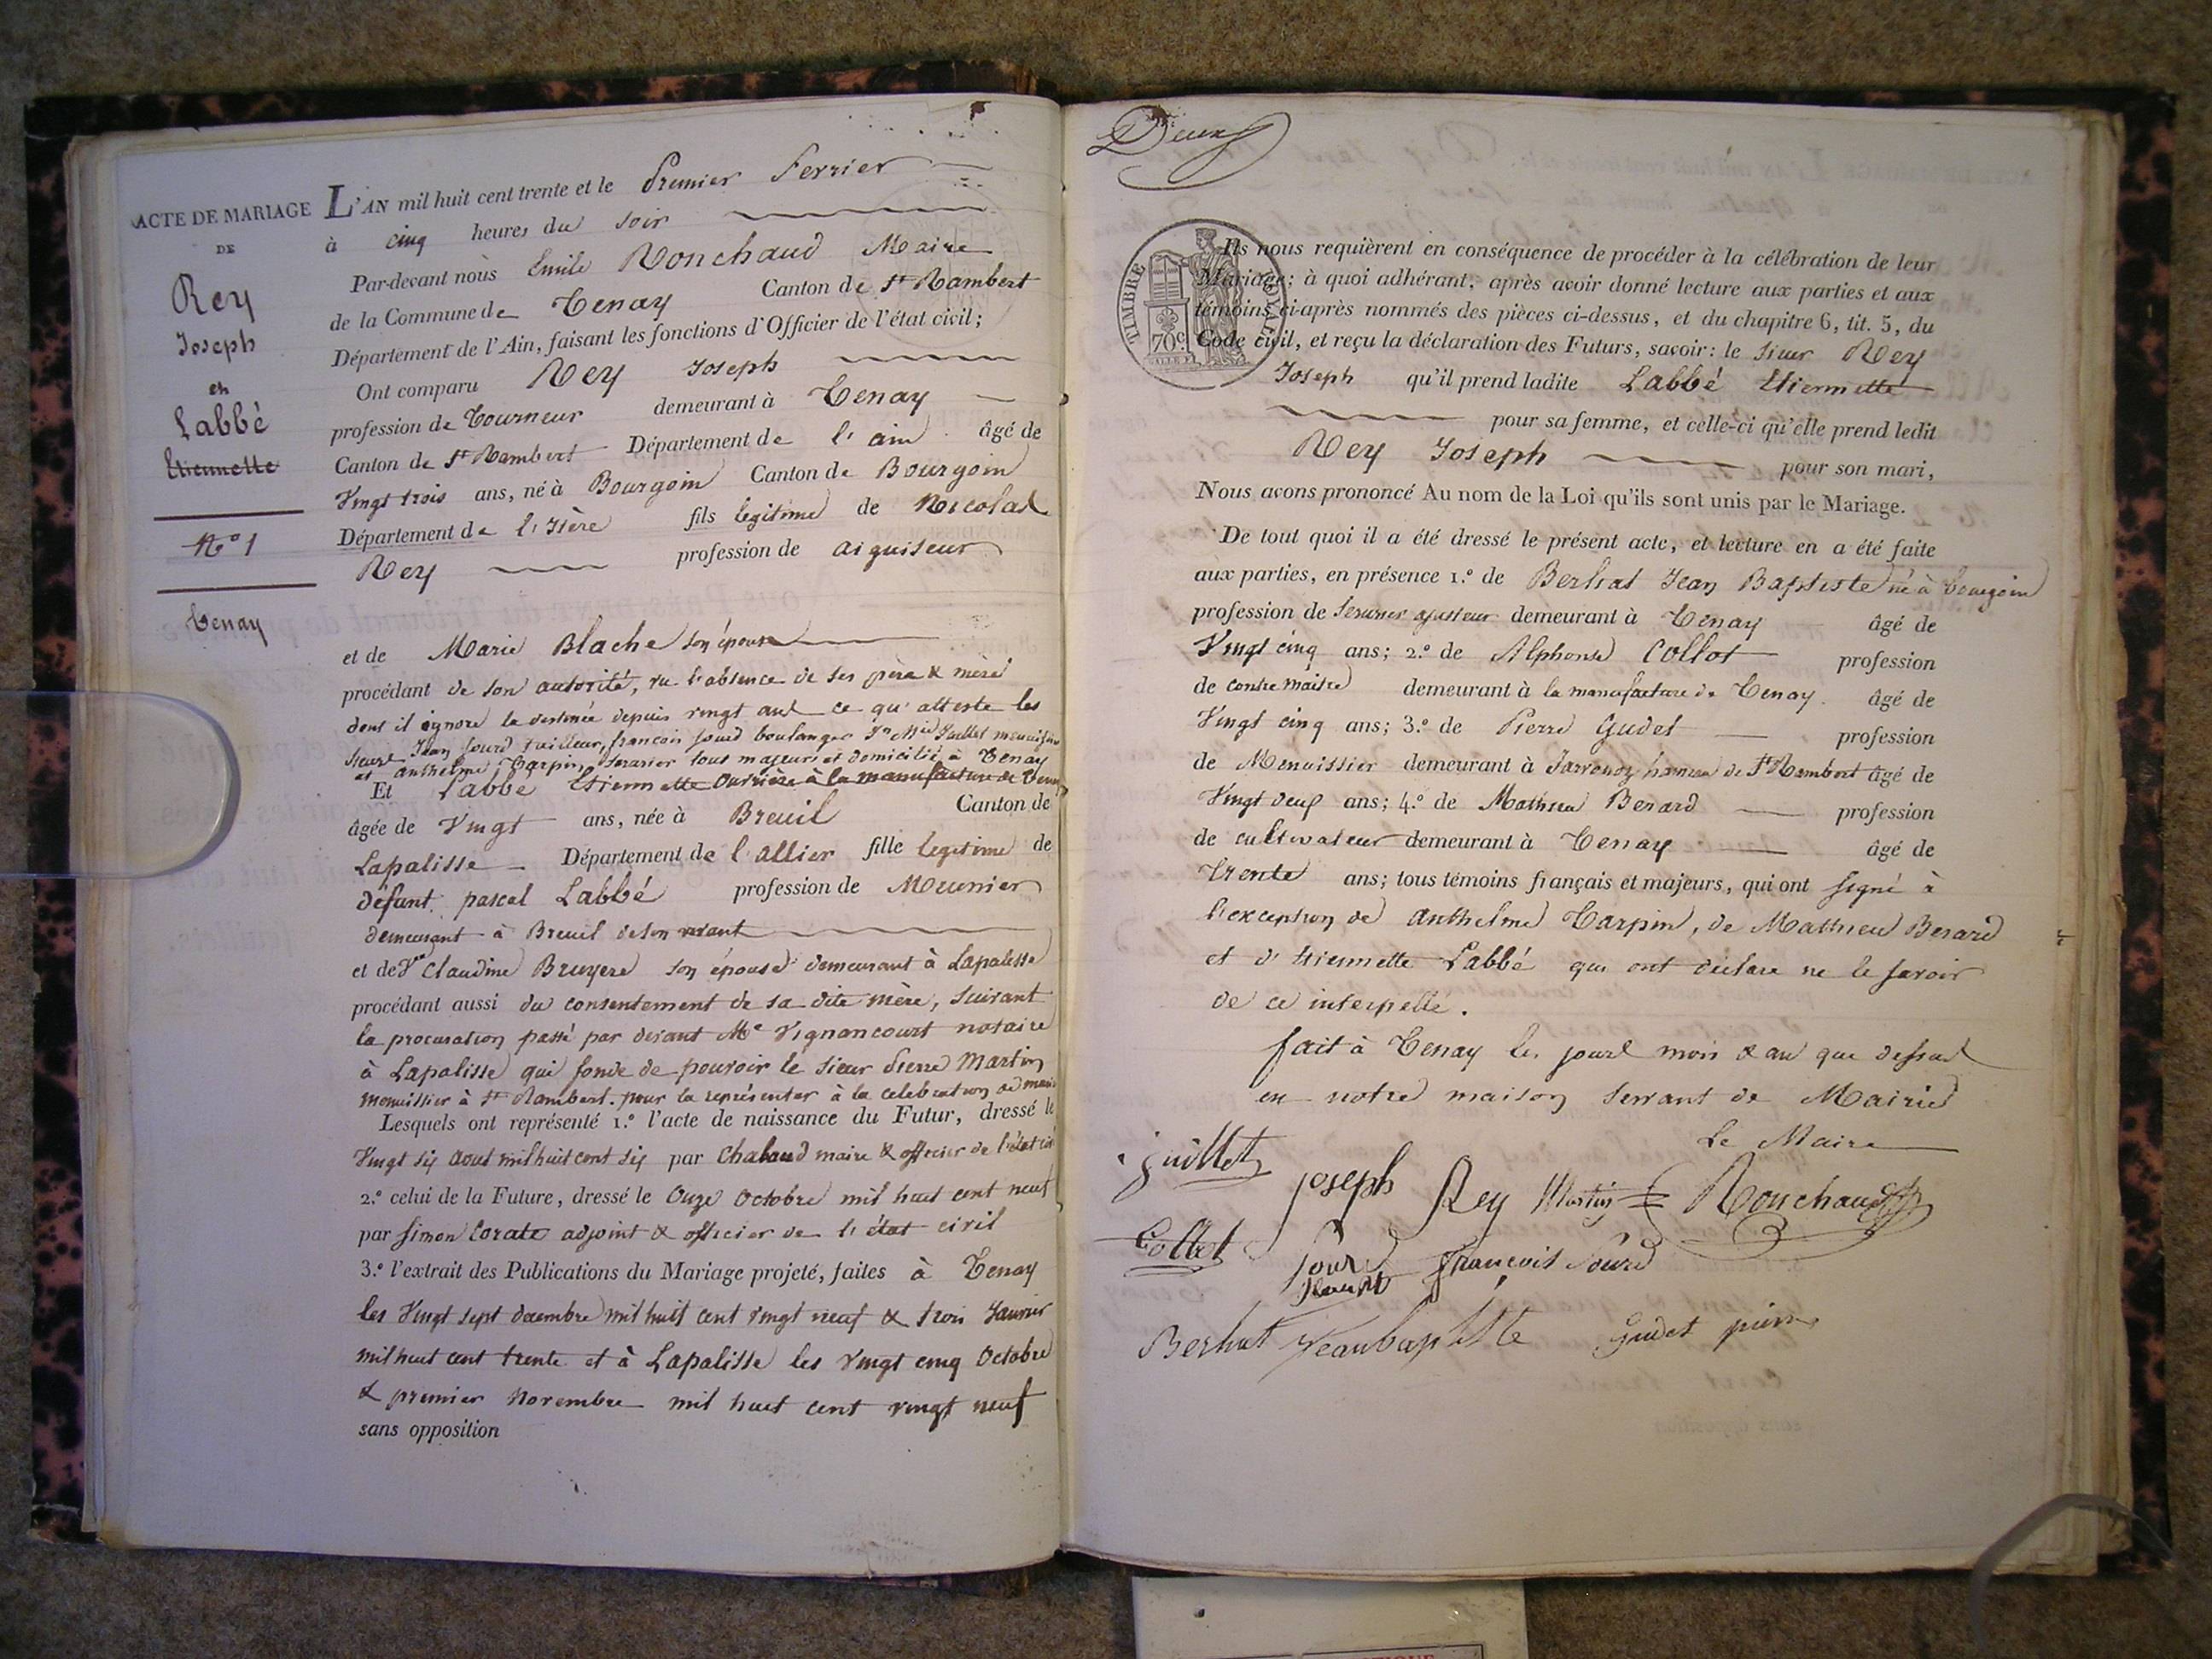 ACTE DE MARIAGE
DE
Rey
Joseph
et
Labbé
Etiennette
N° 1
Tenay
L'AN mil huit cent trente et le Premier Fevrier
à cinq heures du soir
Par-devant nous Emile Ronchaud Maire
de la Commune de Tenay Canton de St Rambert
Département de l'Ain, faisant les fonctions d'Officier de l'état civil;
Ont comparu Rey Joseph
profession de Tourneur demeurant à Tenay
Canton de St Rambert Département de l'ain âgé de
Vingt trois ans, né à Bourgoin Canton de Bourgoin
Département de l'Isère fils legitime de Nicolas
Rey profession de aiguiseur
et de Marie Blache son épouse
procédant de son autorité, vu l'absence de ses père & mère
dont il ignore la destinée depuis vingt ans ce qu'atteste les
sieurs Jean Jourd tailleur, françois Jourd boulanger Jn Mie Juillet menuisier
et anthelme Tarpin, serurier tous majeurs et domiciliés à Tenay
Et Labbé Etiennette ouvrière à la manufacture de Tenay
âgée de Vingt ans, née à Breuil Canton de
Lapalisse Département de l'allier fille legitime de
défunt pascal Labbé profession de Meunier
demeurant à Breuil de son vivant
et de Claudine Bruyere son épouse demeurant à Lapalisse
procédant aussi du consentement de sa dite mère, suivant
la procuration passé par devant Me Vignancourt notaire
à Lapalisse qui fonde de pouvoir le sieur Pierre Martin
menuissier à St Rambert. pour la représenter à la celebration de
Lesquels ont représenté 1.° l'acte de naissance du Futur, dressé le
Vingt six aout mil huit cent six par Chaband maire & officier de l'état civil
2.° celui de la Future, dressé le Onze Octobre mil huit cent neuf
par Simon Corate adjoint & officier de l'état civil
3.° l'extrait des Publications du Mariage projeté, faites à Tenay
les Vingt sept decembre mil huit cent vingt neuf & trois Janvier
mil huit cent trente et à Lapalisse les vingt cinq Octobre
& premier Novembre mil huit cent vingt neuf
sans opposition
Deux
TIMBRE ROYAL
70c
Ils nous requièrent en conséquence de procéder à la célébration de leur
Mariage; à quoi adhérant, après avoir donné lecture aux parties et aux
témoins ci-après nommés des pièces ci-dessus, et du chapitre 6, tit. 5, du
Code civil, et reçu la déclaration des Futurs, savoir: le sieur Rey
Joseph qu'il prend ladite Labbé Etiennette
pour sa femme, et celle-ci qu'elle prend ledit
Rey Joseph pour son mari,
Nous avons prononcé Au nom de la Loi qu'ils sont unis par le Mariage.
De tout quoi il a été dressé le présent acte, et lecture en a été faite
aux parties, en présence 1.° de Berhat Jean Baptiste né à bourgoin
profession de serurier ajusteur demeurant à Tenay âgé de
Vingt cinq ans; 2.° de Alphonse Collot profession
de contre maitre demeurant à la manufacture de Tenay. âgé de
Vingt cinq ans; 3.° de Pierre Gudet profession
de Menuissier demeurant à Javronoz hameau de St Rambert âgé de
Vingt deux ans; 4.° de Mathieu Berard profession
de cultivateur demeurant à Tenay âgé de
Trente ans; tous témoins français et majeurs, qui ont signé à
l'exception de anthelme Tarpin, de Mathieu Berard
et d'Etiennette Labbé qui ont déclaré ne le savoir
de ce interpellé.
fait à Tenay les jour mois & an que dessus
en notre maison servant de Mairie
Le Maire
juillet
joseph Rey Martin Ronchaud
Collot
Jourd françois Jourd
Berhat Jeanbaptiste Gudet pierre